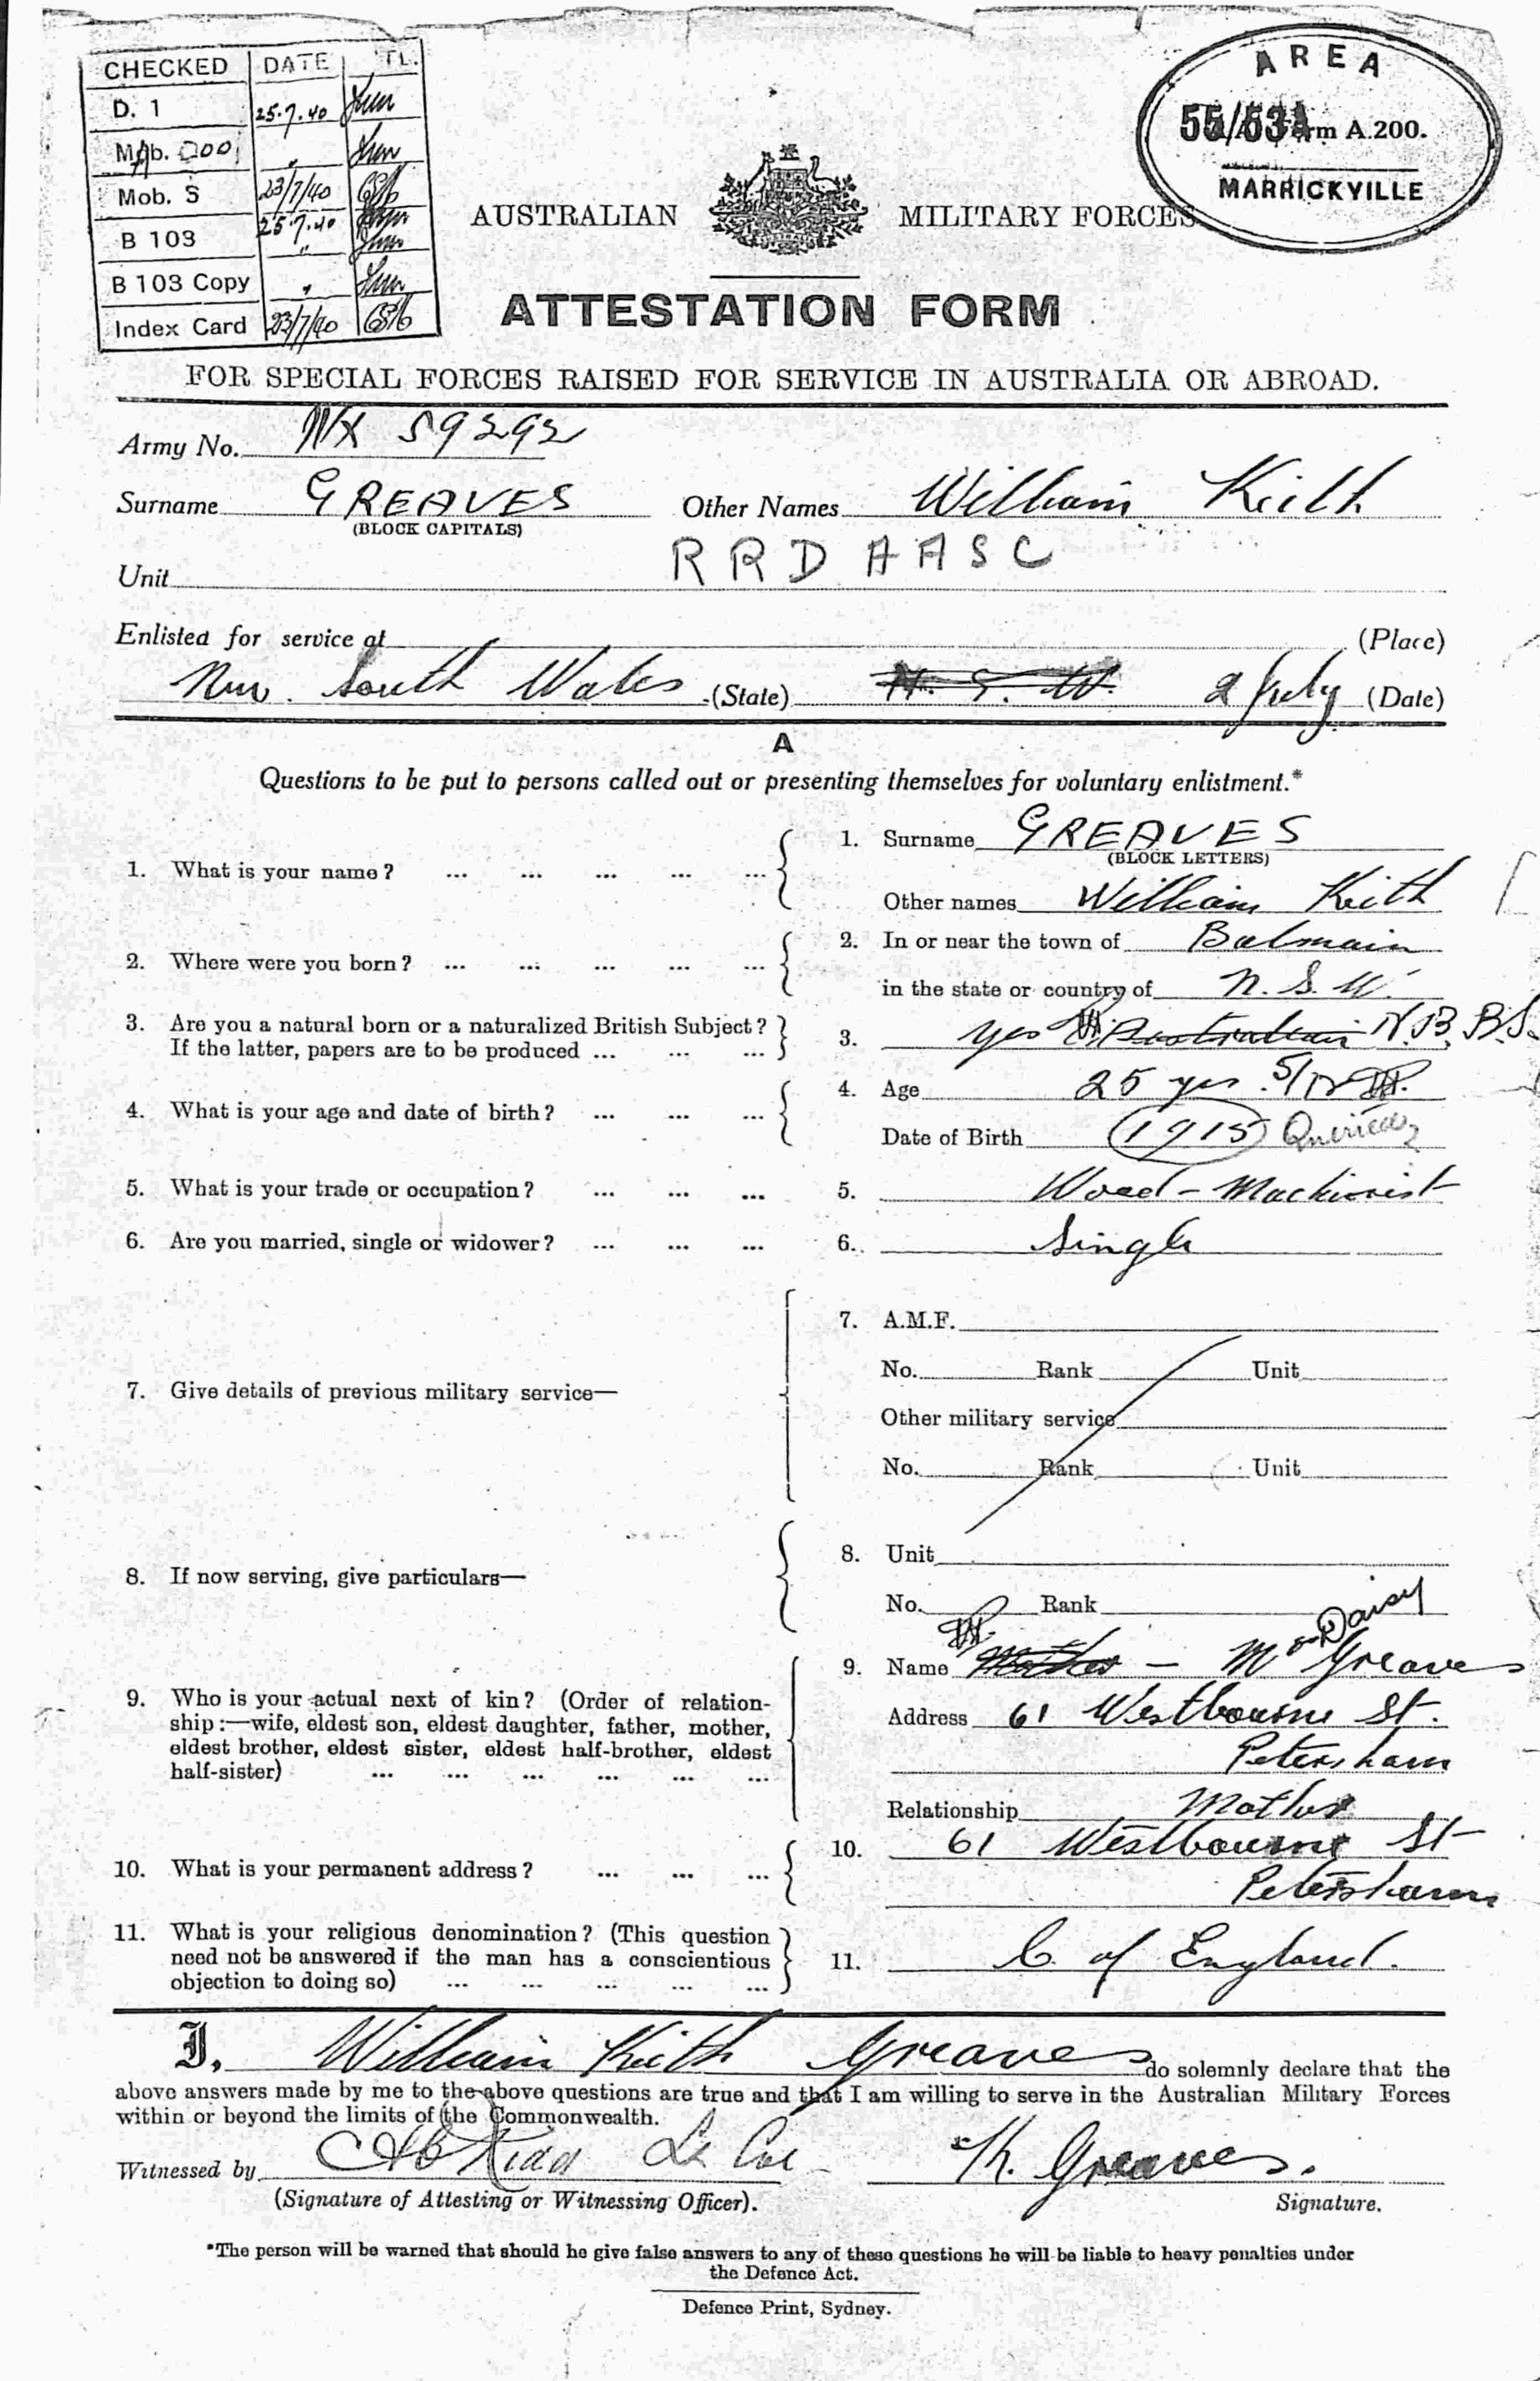 CHECKED DATE TL.
D. 1 25.7.40
Mob. "
Mob. S 23/7/40
B 103 25.7.40
"
B 103 Copy "
Index Card 23/7/40
AREA
55/53A Form A.200.
MARRICKVILLE
AUSTRALIAN MILITARY FORCES
ATTESTATION FORM
FOR SPECIAL FORCES RAISED FOR SERVICE IN AUSTRALIA OR ABROAD.
Army No. NX 59292
Surname GREAVES Other Names William Keith
(BLOCK CAPITALS)
Unit R R D A A S C
Enlisted for service at (Place)
New South Wales (State) N. S. W. 2 July (Date)
A
Questions to be put to persons called out or presenting themselves for voluntary enlistment.*
1. What is your name? ... ... ... ... ... 1. Surname GREAVES
(BLOCK LETTERS)
Other names William Keith
2. Where were you born? ... ... ... ... ... 2. In or near the town of Balmain
in the state or country of N. S. W.
3. Are you a natural born or a naturalized British Subject? 3. yes Australian N.B.B.S.
If the latter, papers are to be produced ... ... ...
4. What is your age and date of birth? ... ... ... 4. Age 25 yrs 5/12
Date of Birth 1915 Queried
5. What is your trade or occupation? ... ... ... 5. Wood-Machinist
6. Are you married, single or widower? ... ... ... 6. Single
7. Give details of previous military service— 7. A.M.F.
No. Rank Unit
Other military service
No. Rank Unit
8. If now serving, give particulars— 8. Unit
No. Rank
Daisy
9. Name Mother - Mrs Greaves
9. Who is your actual next of kin? (Order of relation-
ship:—wife, eldest son, eldest daughter, father, mother,
eldest brother, eldest sister, eldest half-brother, eldest
half-sister) ... ... ... ... ... ...
Address 61 Westbourne St.
Petersham
Relationship Mother
10. What is your permanent address? ... ... ... 10. 61 Westbourne St
Petersham
11. What is your religious denomination? (This question
need not be answered if the man has a conscientious
objection to doing so) ... ... ... ... ...
11. C. of England.
I, William Keith Greaves do solemnly declare that the
above answers made by me to the above questions are true and that I am willing to serve in the Australian Military Forces
within or beyond the limits of the Commonwealth.
Witnessed by K. Greaves.
(Signature of Attesting or Witnessing Officer). Signature.
*The person will be warned that should he give false answers to any of these questions he will be liable to heavy penalties under
the Defence Act.
Defence Print, Sydney.